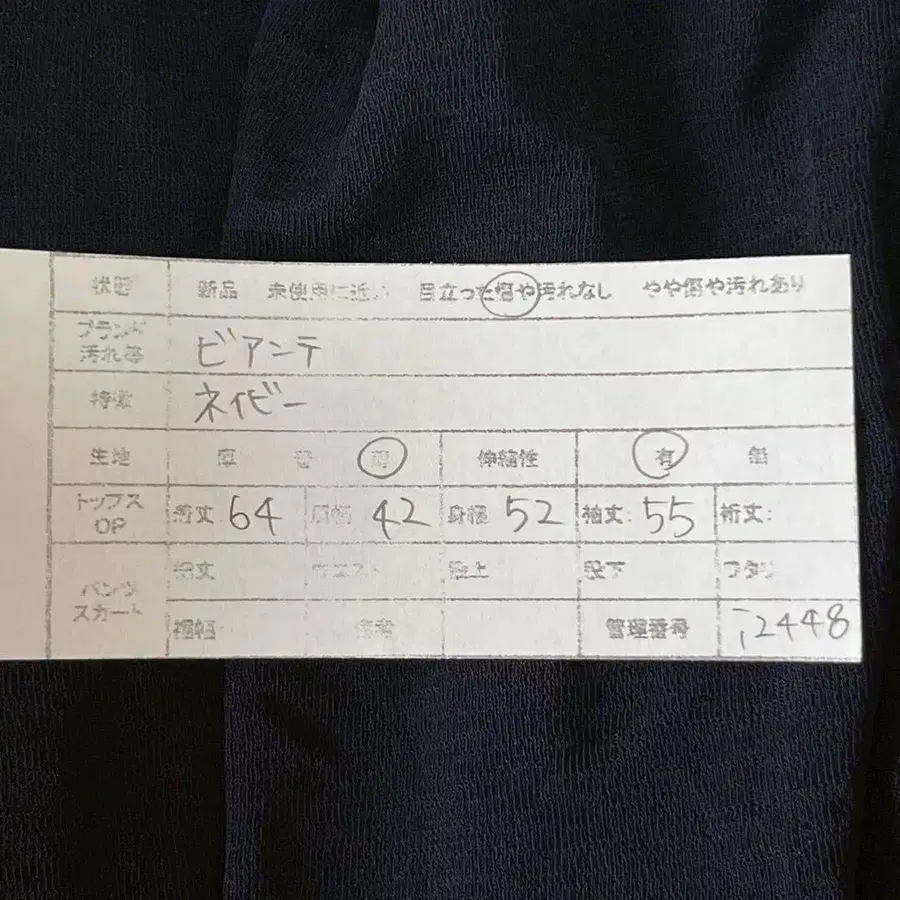 状態 新品 未使用に近い 目立った傷や汚れなし やや傷や汚れあり
ブランド
汚れ等 ビアンテ
特徴 ネイビー
生地 厚 普 薄 伸縮性 有 無
トップス
OP 着丈: 64 肩幅: 42 身幅 52 袖丈: 55 裄丈:
パンツ
スカート 総丈 ウエスト 股上 股下 ワタリ
裾幅 備考 管理番号 i2448